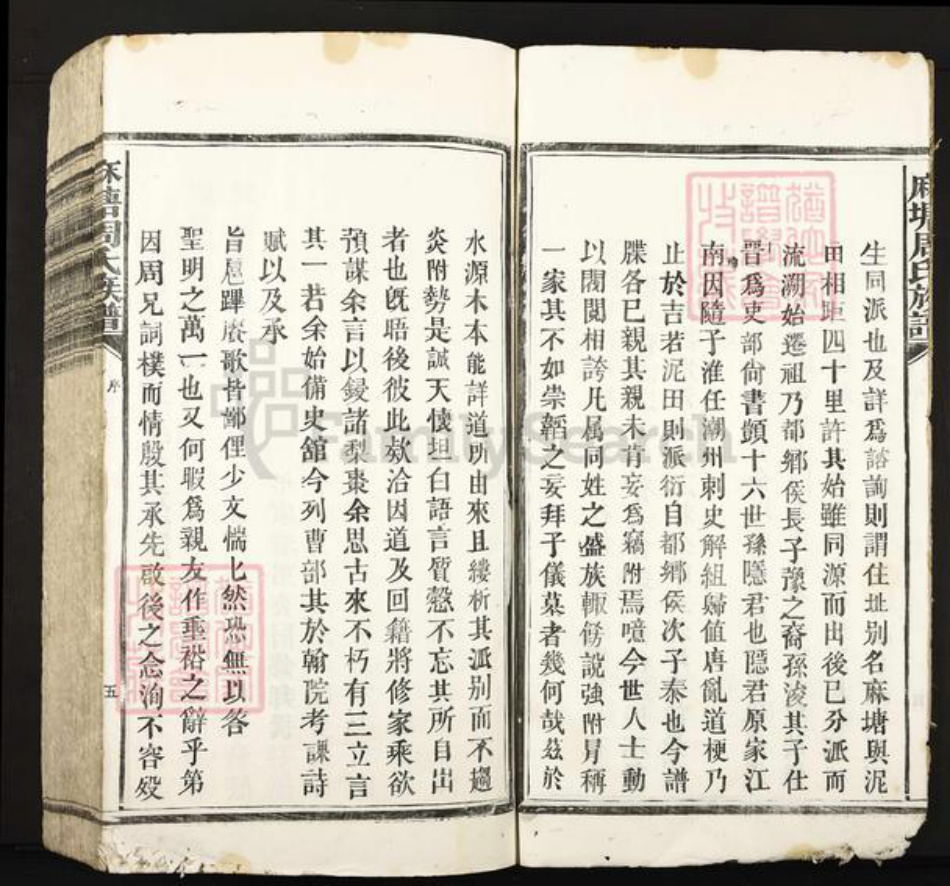 麻塘周氏族譜
生同派也及詳爲諮詢則謂住址別名麻塘與泥
田相距四十里許其始雖同源而出後已分派而
流溯始遷祖乃都鄉侯長子豫之裔孫浚其子仕
晋爲吏部尙書顗十六世孫隱君也隱君原家江
南因隨子淮任潮州刺史解組歸值唐亂道梗乃
止於吉若泥田則派衍自都鄉侯次子泰也今譜
牒各已親其親未肯妄爲竊附焉噫今世人士動
以閥閱相誇凡属同姓之盛族輙傍説強附冐稱
一家其不如崇韜之妄拜子儀墓者幾何哉玆於
水源木本能詳道所由來且縷析其派别而不趨
炎附勢是誠天懷坦白語言質慤不忘其所自出
者也旣晤後彼此欸洽因道及回籍將修家乘欲
預謀余言以鋟諸梨棗余思古來不朽有三立言
其一若余始備史舘今列曹部其於翰院考課詩
賦以及承
旨賡歌皆鄙俚少文惴匕然恐無以答
聖明之萬一也又何暇爲親友作垂裕之辭乎第
因周兄詞樸而情殷其承先啟後之念洵不容歿
麻塘周氏族譜
序
五
FamilySearch